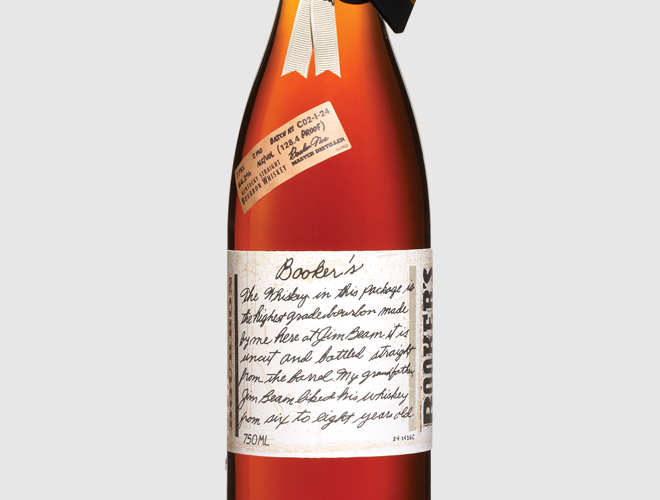 7 YRS 8 MO BATCH Nº C02-1-24
64.2% ALC/VOL (128.4 PROOF)
KENTUCKY STRAIGHT Booker Noe
BOURBON WHISKEY MASTER DISTILLER
Booker's
The Whiskey in this package is
the highest grade bourbon made
by me here at Jim Beam it is
uncut and bottled straight
from the barrel. My grandfather,
Jim Beam liked his whiskey
from six to eight years old
750ML
24-1416C
BOOKER'S